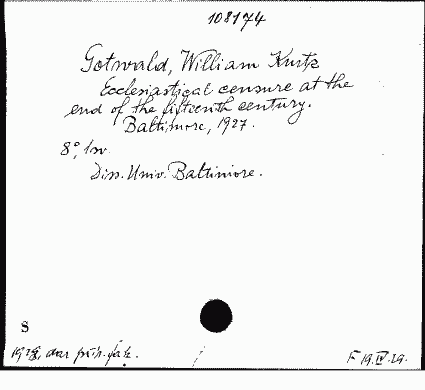 108174
Gotwald, William Kurtz
Ecclesiastical censure at the
end of the fifteenth century.
Baltimore, 1927.
8°, 1 sv.
Diss. Univ. Baltimore.
S
1928, dar
F 19.IV.29.